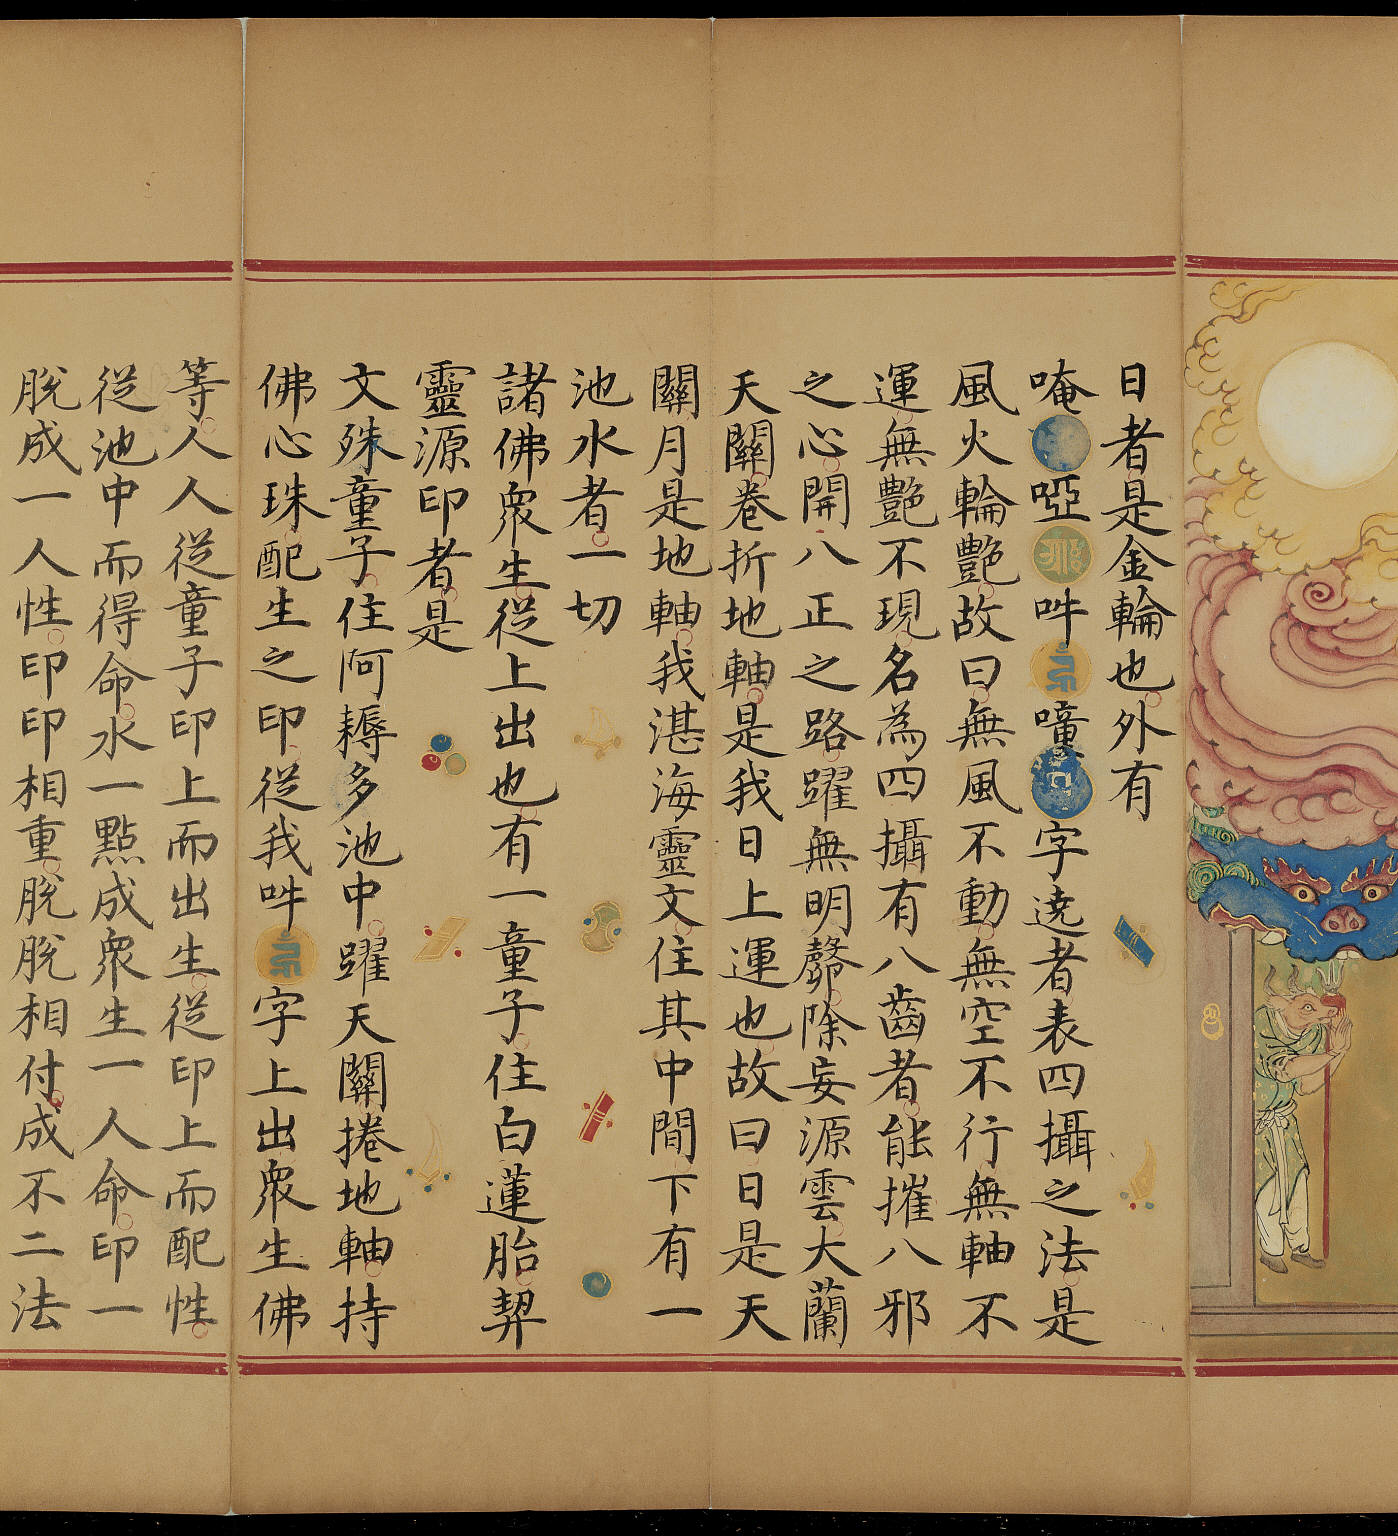 日者是金輪也外有
唵啞吽㘈字遶者表四攝之法是
風火輪艷故曰無風不動無空不行無軸不
運無艷不現名為四攝有八齒者能摧八邪
之心開八正之路躍無明髎除妄源雲大蘭
天關卷折地軸是我日上運也故曰日是天
關月是地軸我湛海靈文住其中間下有一
池水者一切
諸佛眾生從上出也有一童子住白蓮胎契
靈源印者是
文殊童子住阿耨多池中躍天關捲地軸持
佛心珠配生之印從我吽字上出眾生佛
等人人從童子印上而出生從印上而配性
從池中而得命水一點成眾生一人命印一
脫成一人性印印相重脫脫相付成不二法